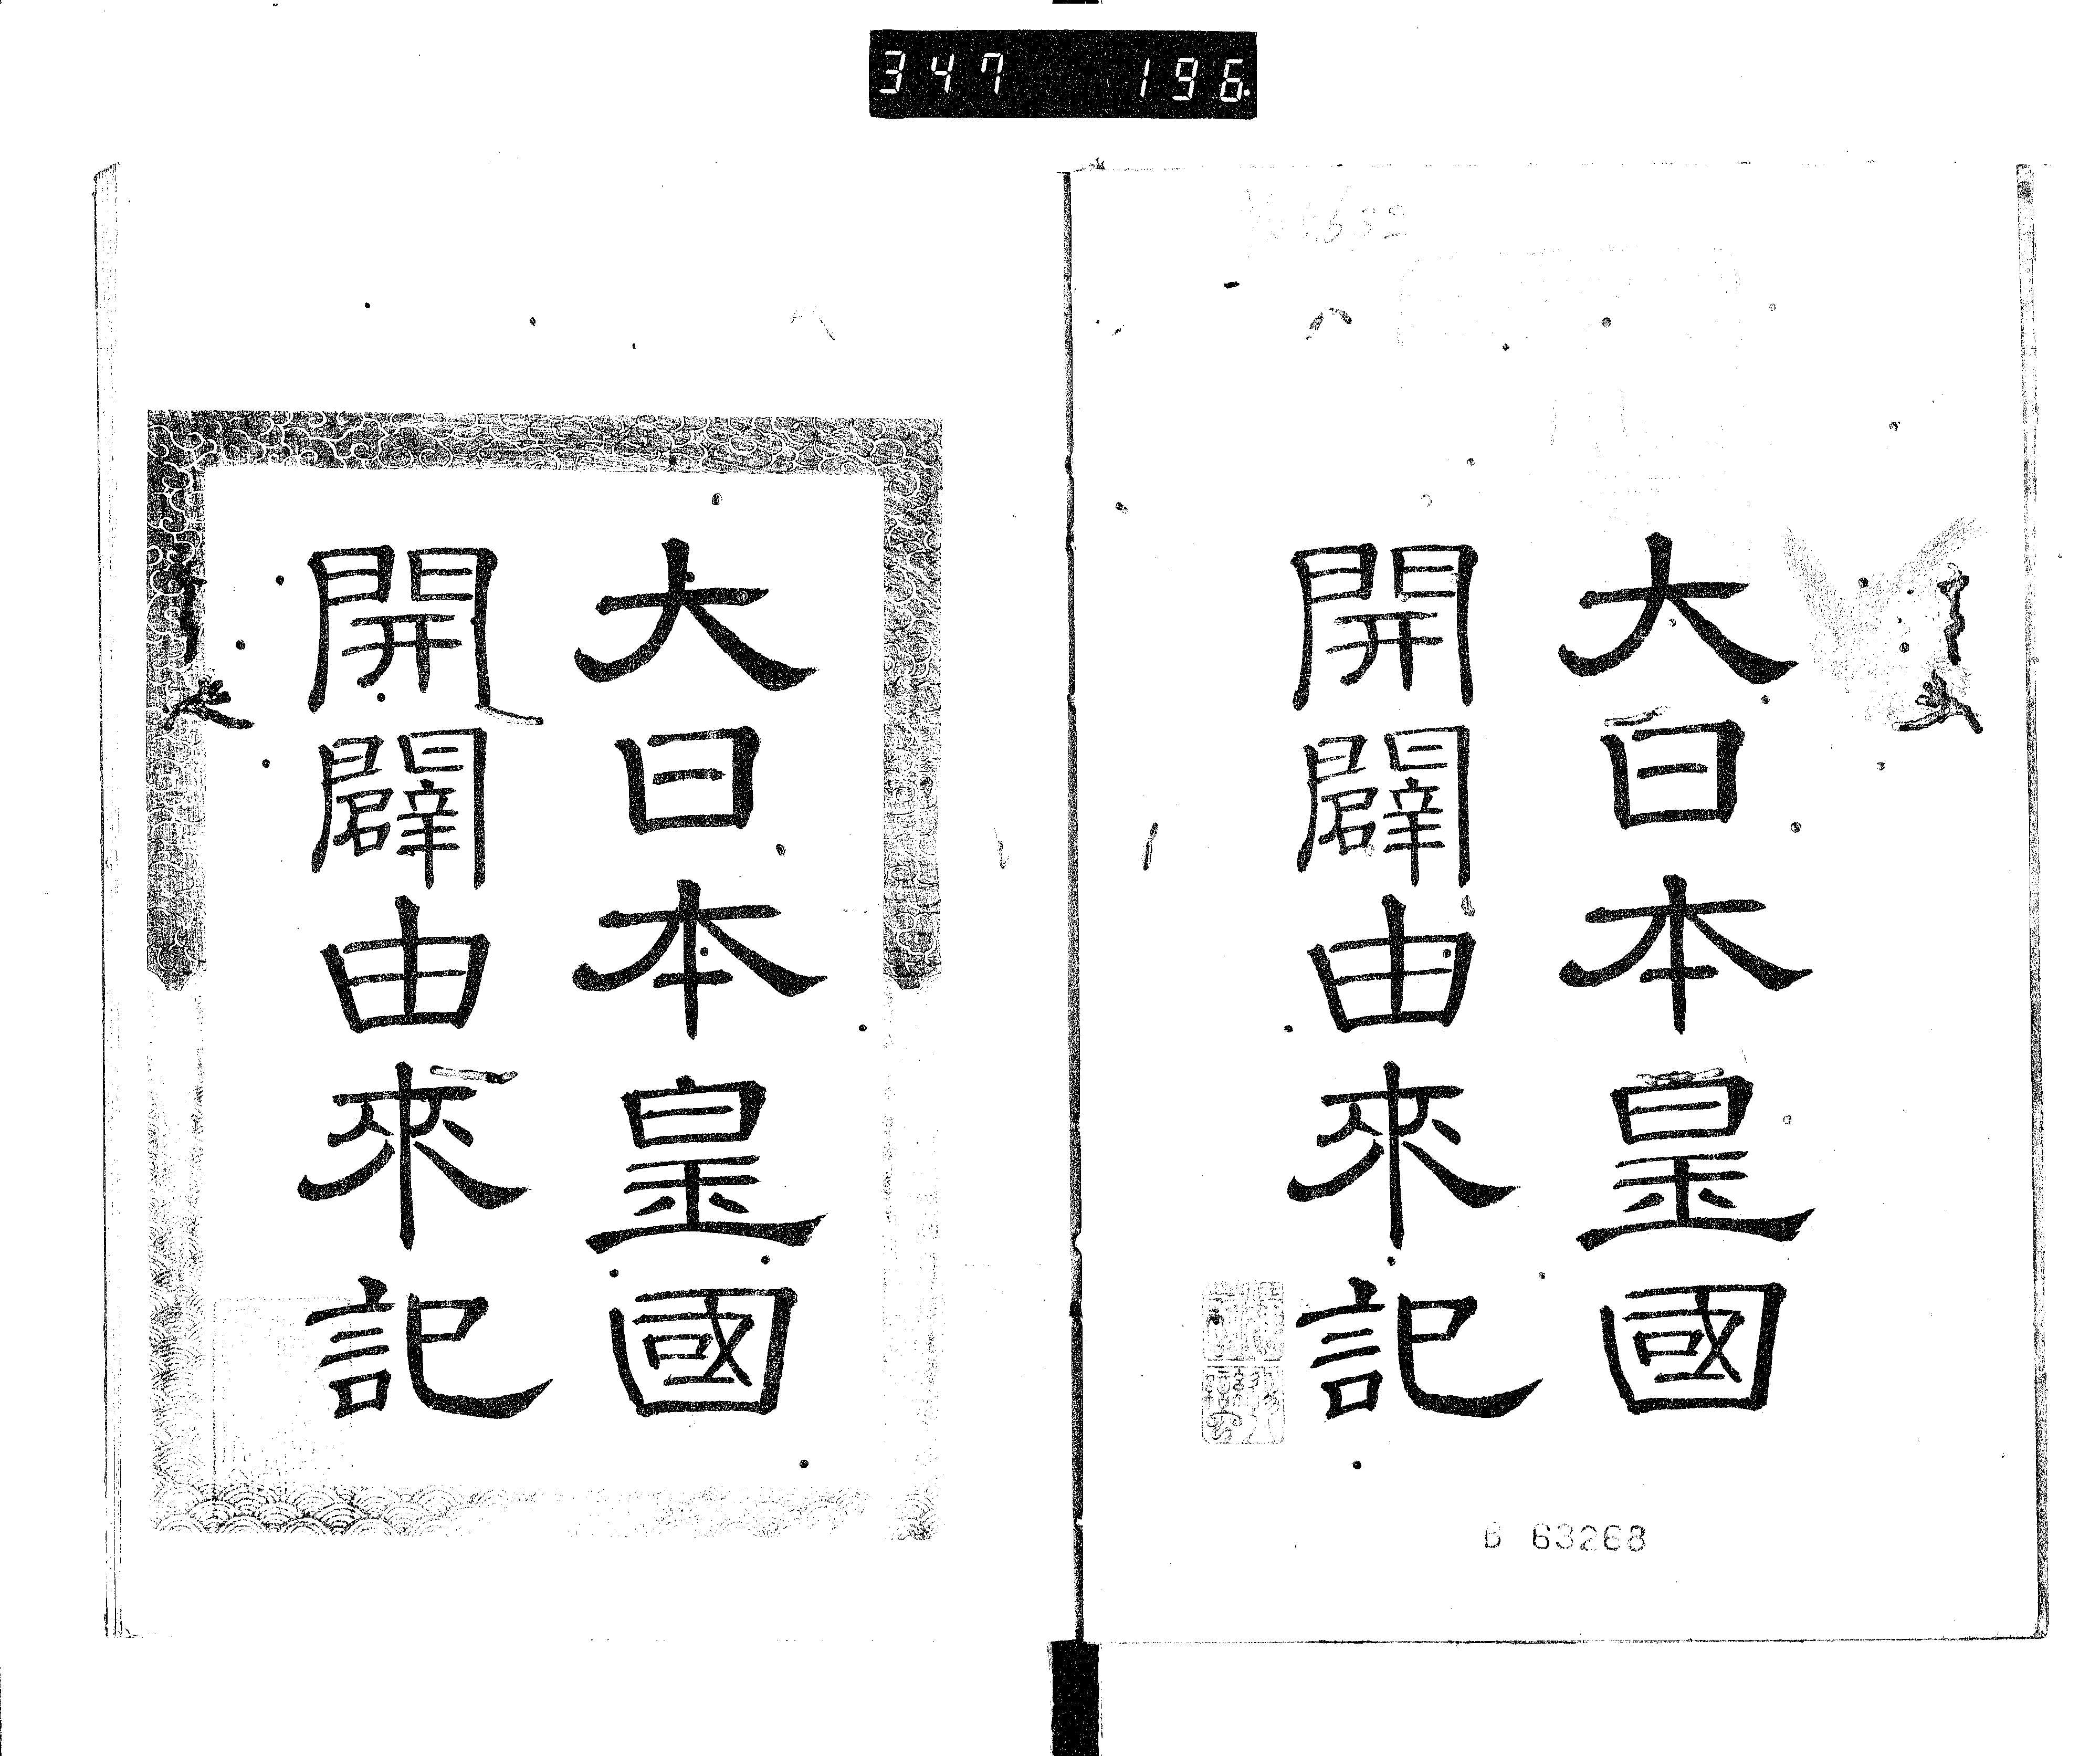 347 196.
大日本皇國
開闢由來記
B 63268
大日本皇國
開闢由來記